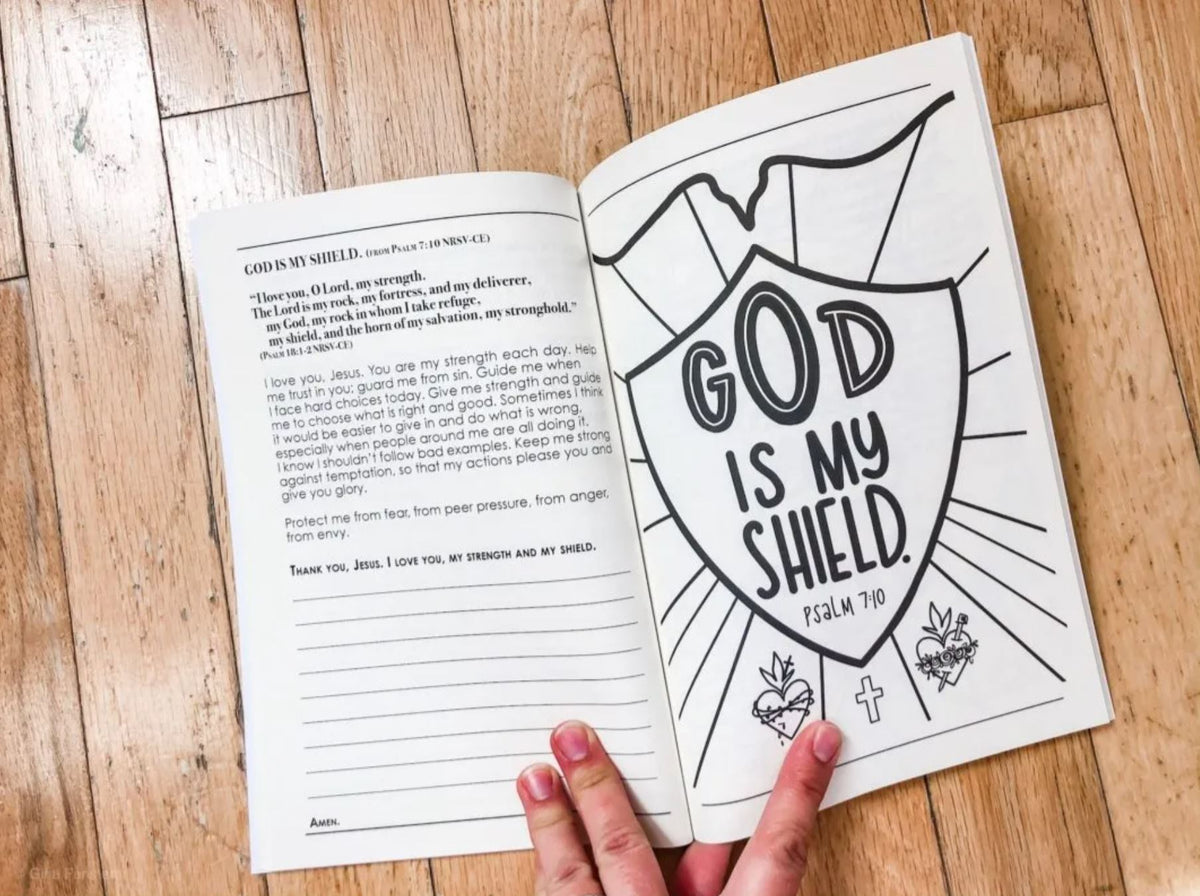 GOD IS MY SHIELD. (FROM PSALM 7:10 NRSV-CE)
“I love you, O Lord, my strength.
The Lord is my rock, my fortress, and my deliverer,
my God, my rock in whom I take refuge,
my shield, and the horn of my salvation, my stronghold.”
(PSALM 18:1-2 NRSV-CE)
I love you, Jesus. You are my strength each day. Help
me trust in you; guard me from sin. Guide me when
I face hard choices today. Give me strength and guide
me to choose what is right and good. Sometimes I think
it would be easier to give in and do what is wrong,
especially when people around me are all doing it.
I know I shouldn't follow bad examples. Keep me strong
against temptation, so that my actions please you and
give you glory.
Protect me from fear, from peer pressure, from anger,
from envy.
THANK YOU, JESUS. I LOVE YOU, MY STRENGTH AND MY SHIELD.
AMEN.
GOD
IS MY
SHIELD.
PSALM 7:10